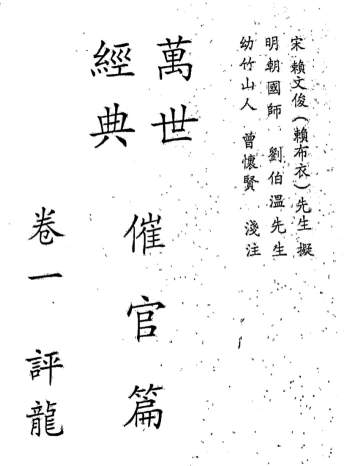 宋 賴文俊(賴布衣)先生 擬
明朝國師 劉伯溫先生
幼竹山人 曾懷賢 淺注
萬世
經典
催官篇
卷一 評龍